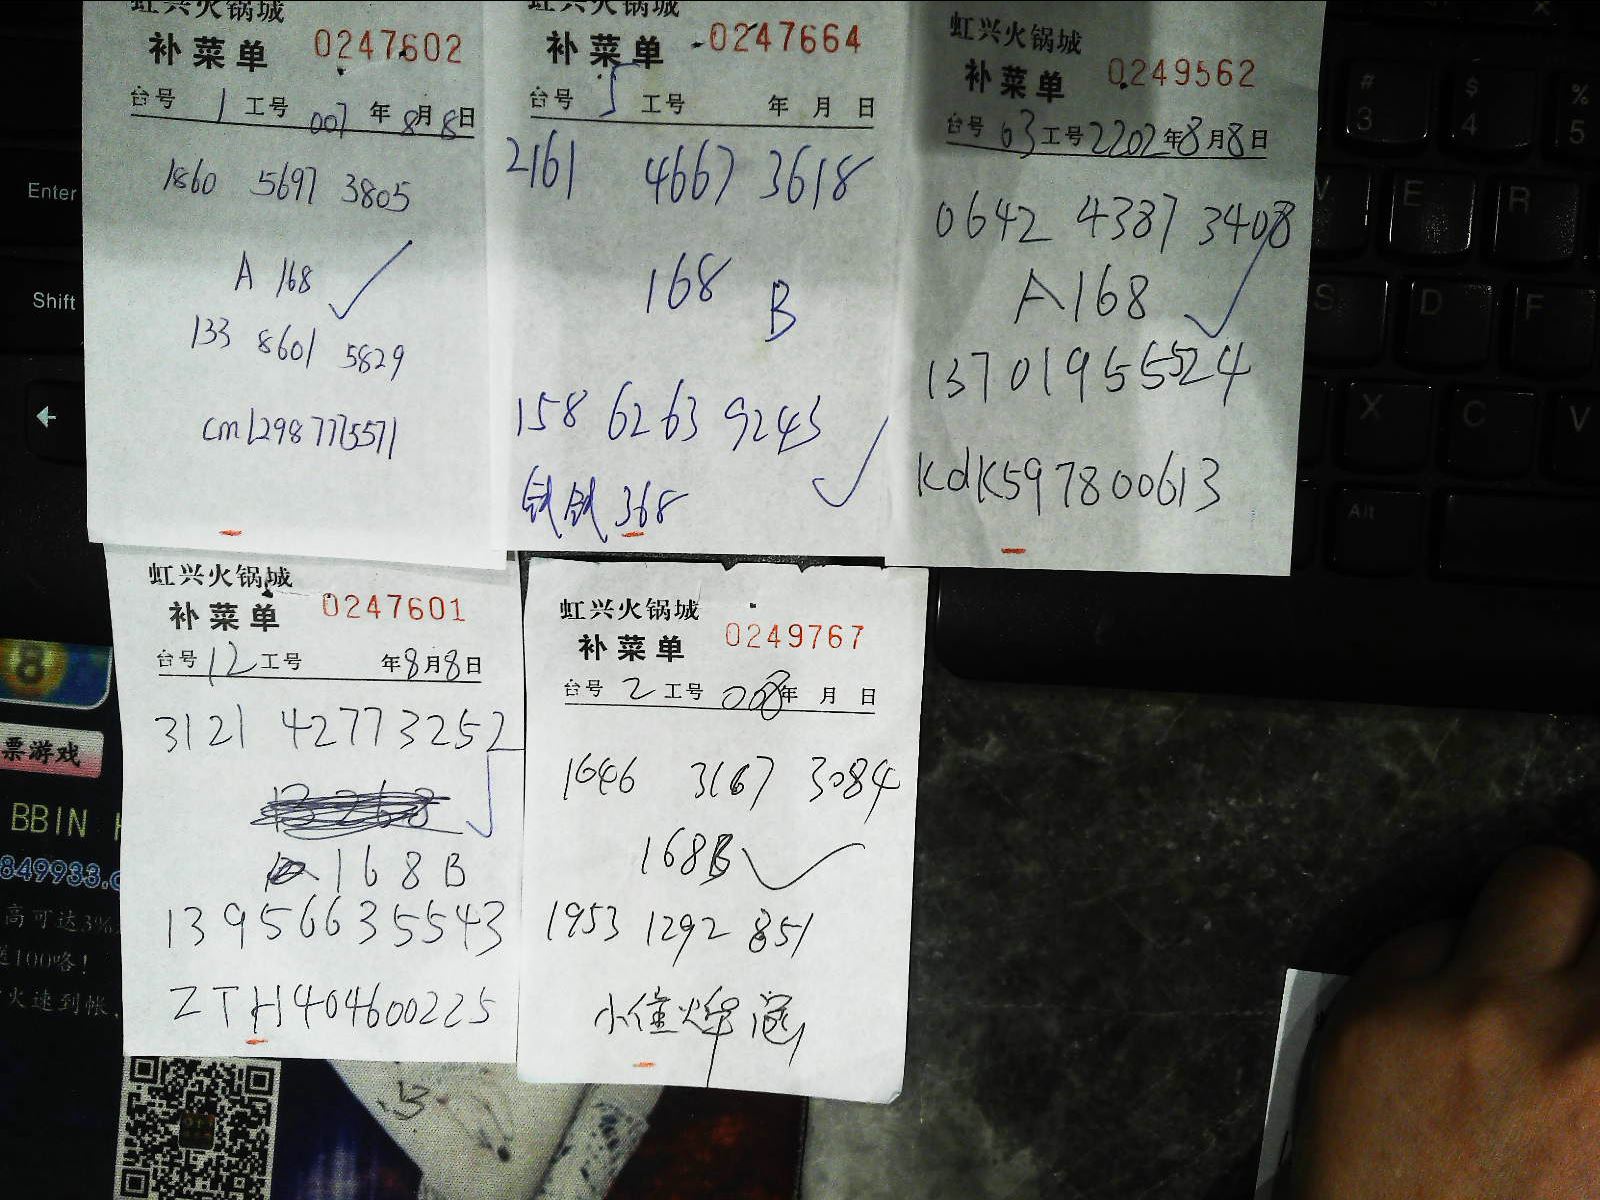 虹兴火锅城
补菜单 0247602
台号 1 工号 007 年 8月 8日
1860 5697 3805
A 168
133 8601 5829
虹兴火锅城
补菜单 0247664
台号 5 工号 年 月 日
2161 4667 3618
168 B
158 6263 9243
368
虹兴火锅城
补菜单 0249562
台号 63 工号 2202 年 8月 8日
0642 4387 3408
A168
13701955524
KdK597800613
虹兴火锅城
补菜单 0247601
台号 12 工号 年 8月 8日
3121 42773252
168B
13956635543
ZTH404600225
虹兴火锅城
补菜单 0249767
台号 2 工号 008 年 月 日
1646 3167 3084
168B
1953 1292 851
Enter
Shift
#
3
$
4
%
5
E
R
S
D
F
X
C
V
Alt
8
票游戏
BBIN
849933.
高可达3%
送100咯!
火速到帐